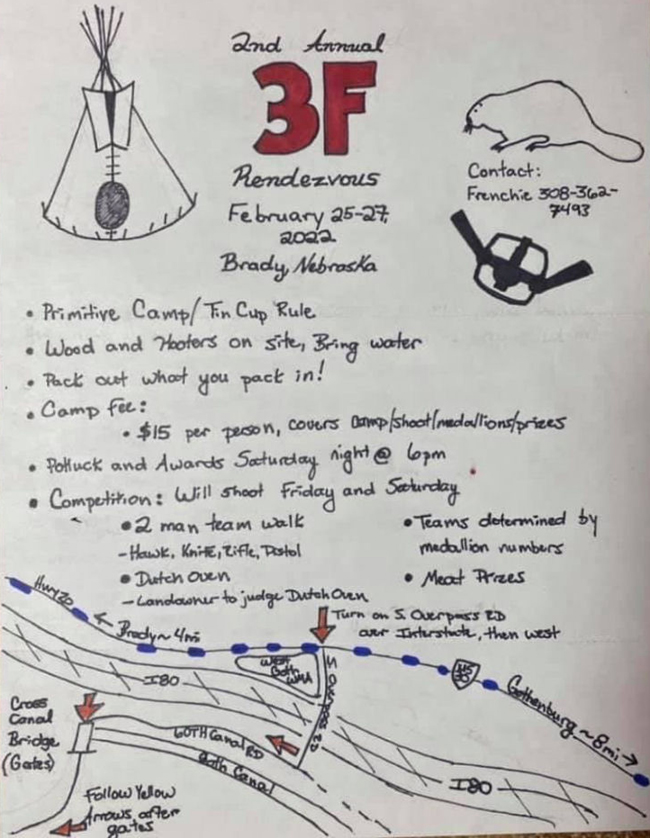 2nd Annual
3F
Rendezvous
February 25-27,
2022
Brady, Nebraska
Contact:
Frenchie 308-362-
7493
• Primitive Camp/Tin Cup Rule
• Wood and Hooters on site, Bring water
• Pack out what you pack in!
• Camp Fee:
• $15 per person, covers camp/shoot/medallions/prizes
• Potluck and Awards Saturday night @ 6pm
• Competition: Will shoot Friday and Saturday
• 2 man team walk
- Hawk, Knife, Rifle, Pistol
• Dutch Oven
- Landowner to judge Dutch Oven
• Teams determined by
medallion numbers
• Meat Prizes
Hwy 30
← Brady ~ 4mi
Turn on S. Overpass RD
over Interstate, then west
West
Goth
WMA
US
30
Gothenburg ~ 8mi →
I80
S Overpass RD
Cross
Canal
Bridge
(Gates)
GOTH Canal RD
Goth Canal
I80
Follow Yellow
Arrows after
gates